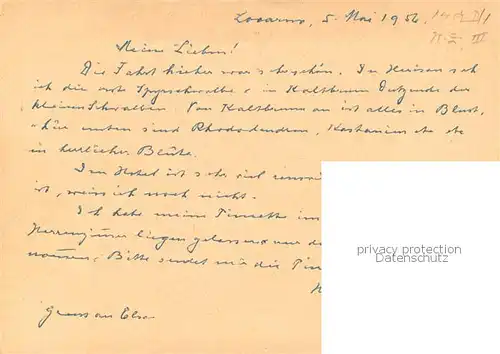 Locarno, 5. Mai 1956.
Meine Lieben!
Die Fahrt hieher war sehr schön. In Herisau sah
ich die erste Spyrschwalbe & in Kaltbrunn Dutzende der
kleinen Schwalben. Von Kaltbrunn an ist alles in Blust,
hier unten sind Rhododendren, Kastanien etc etc
in herrlicher Blüte.
Im Hotel ist sehr viel
ist, weiss ich noch nicht.
Ich habe meine Pincette im
Herrenzimmer liegen gelassen &
nommen, Bitte sendet mir die Pin
Gruss an Elsa
privacy protection
www.ansichtskartenversand.com